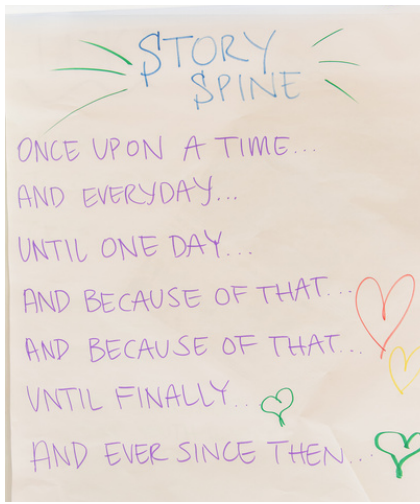 STORY
SPINE
ONCE UPON A TIME...
AND EVERYDAY...
UNTIL ONE DAY...
AND BECAUSE OF THAT...
AND BECAUSE OF THAT...
UNTIL FINALLY...
AND EVER SINCE THEN...